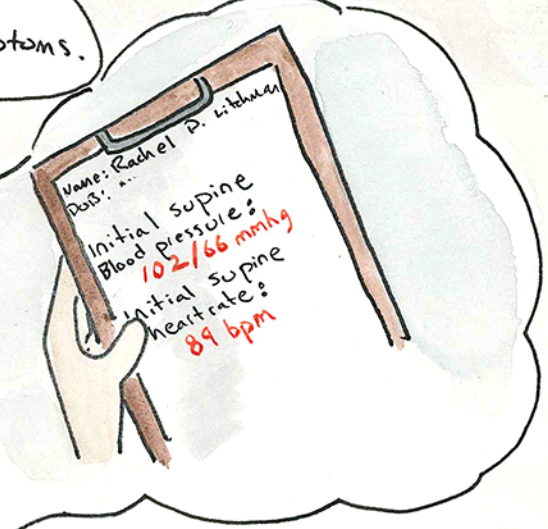 otoms.
Name: Rachel P. Litchman
DOB: ...
Initial supine
Blood pressure:
102/66 mmhg
Initial supine
heartrate:
89 bpm